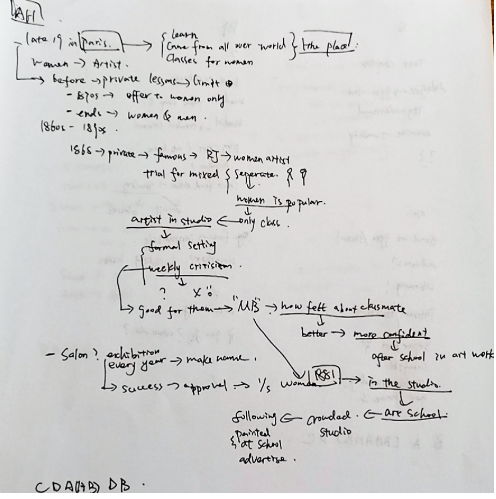 Art
- late 19 in paris. → { learn
came from all over world } the place.
classes for women
women → Artist.
→ before → private lessons → limit
- 870s → offer to women only
- ends → women & men.
1860s - 1890s.
1868 → private → famous → RJ → women artist
trial for mixed { seperate.
women is popular.
artist in studio ← only class.
formal setting
weekly critisism.
? x
→ good for them → "MB" → how felt about classmate
better → more confident
after school in art work
- Salon? exhibition every year → make name.
→ success → approval → 1/5 women → in the studio.
following ← crowded ← art school.
painted studio
at school
advertise.
C D A(HB) D B.